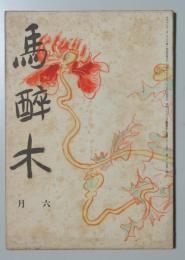 馬醉木
六月